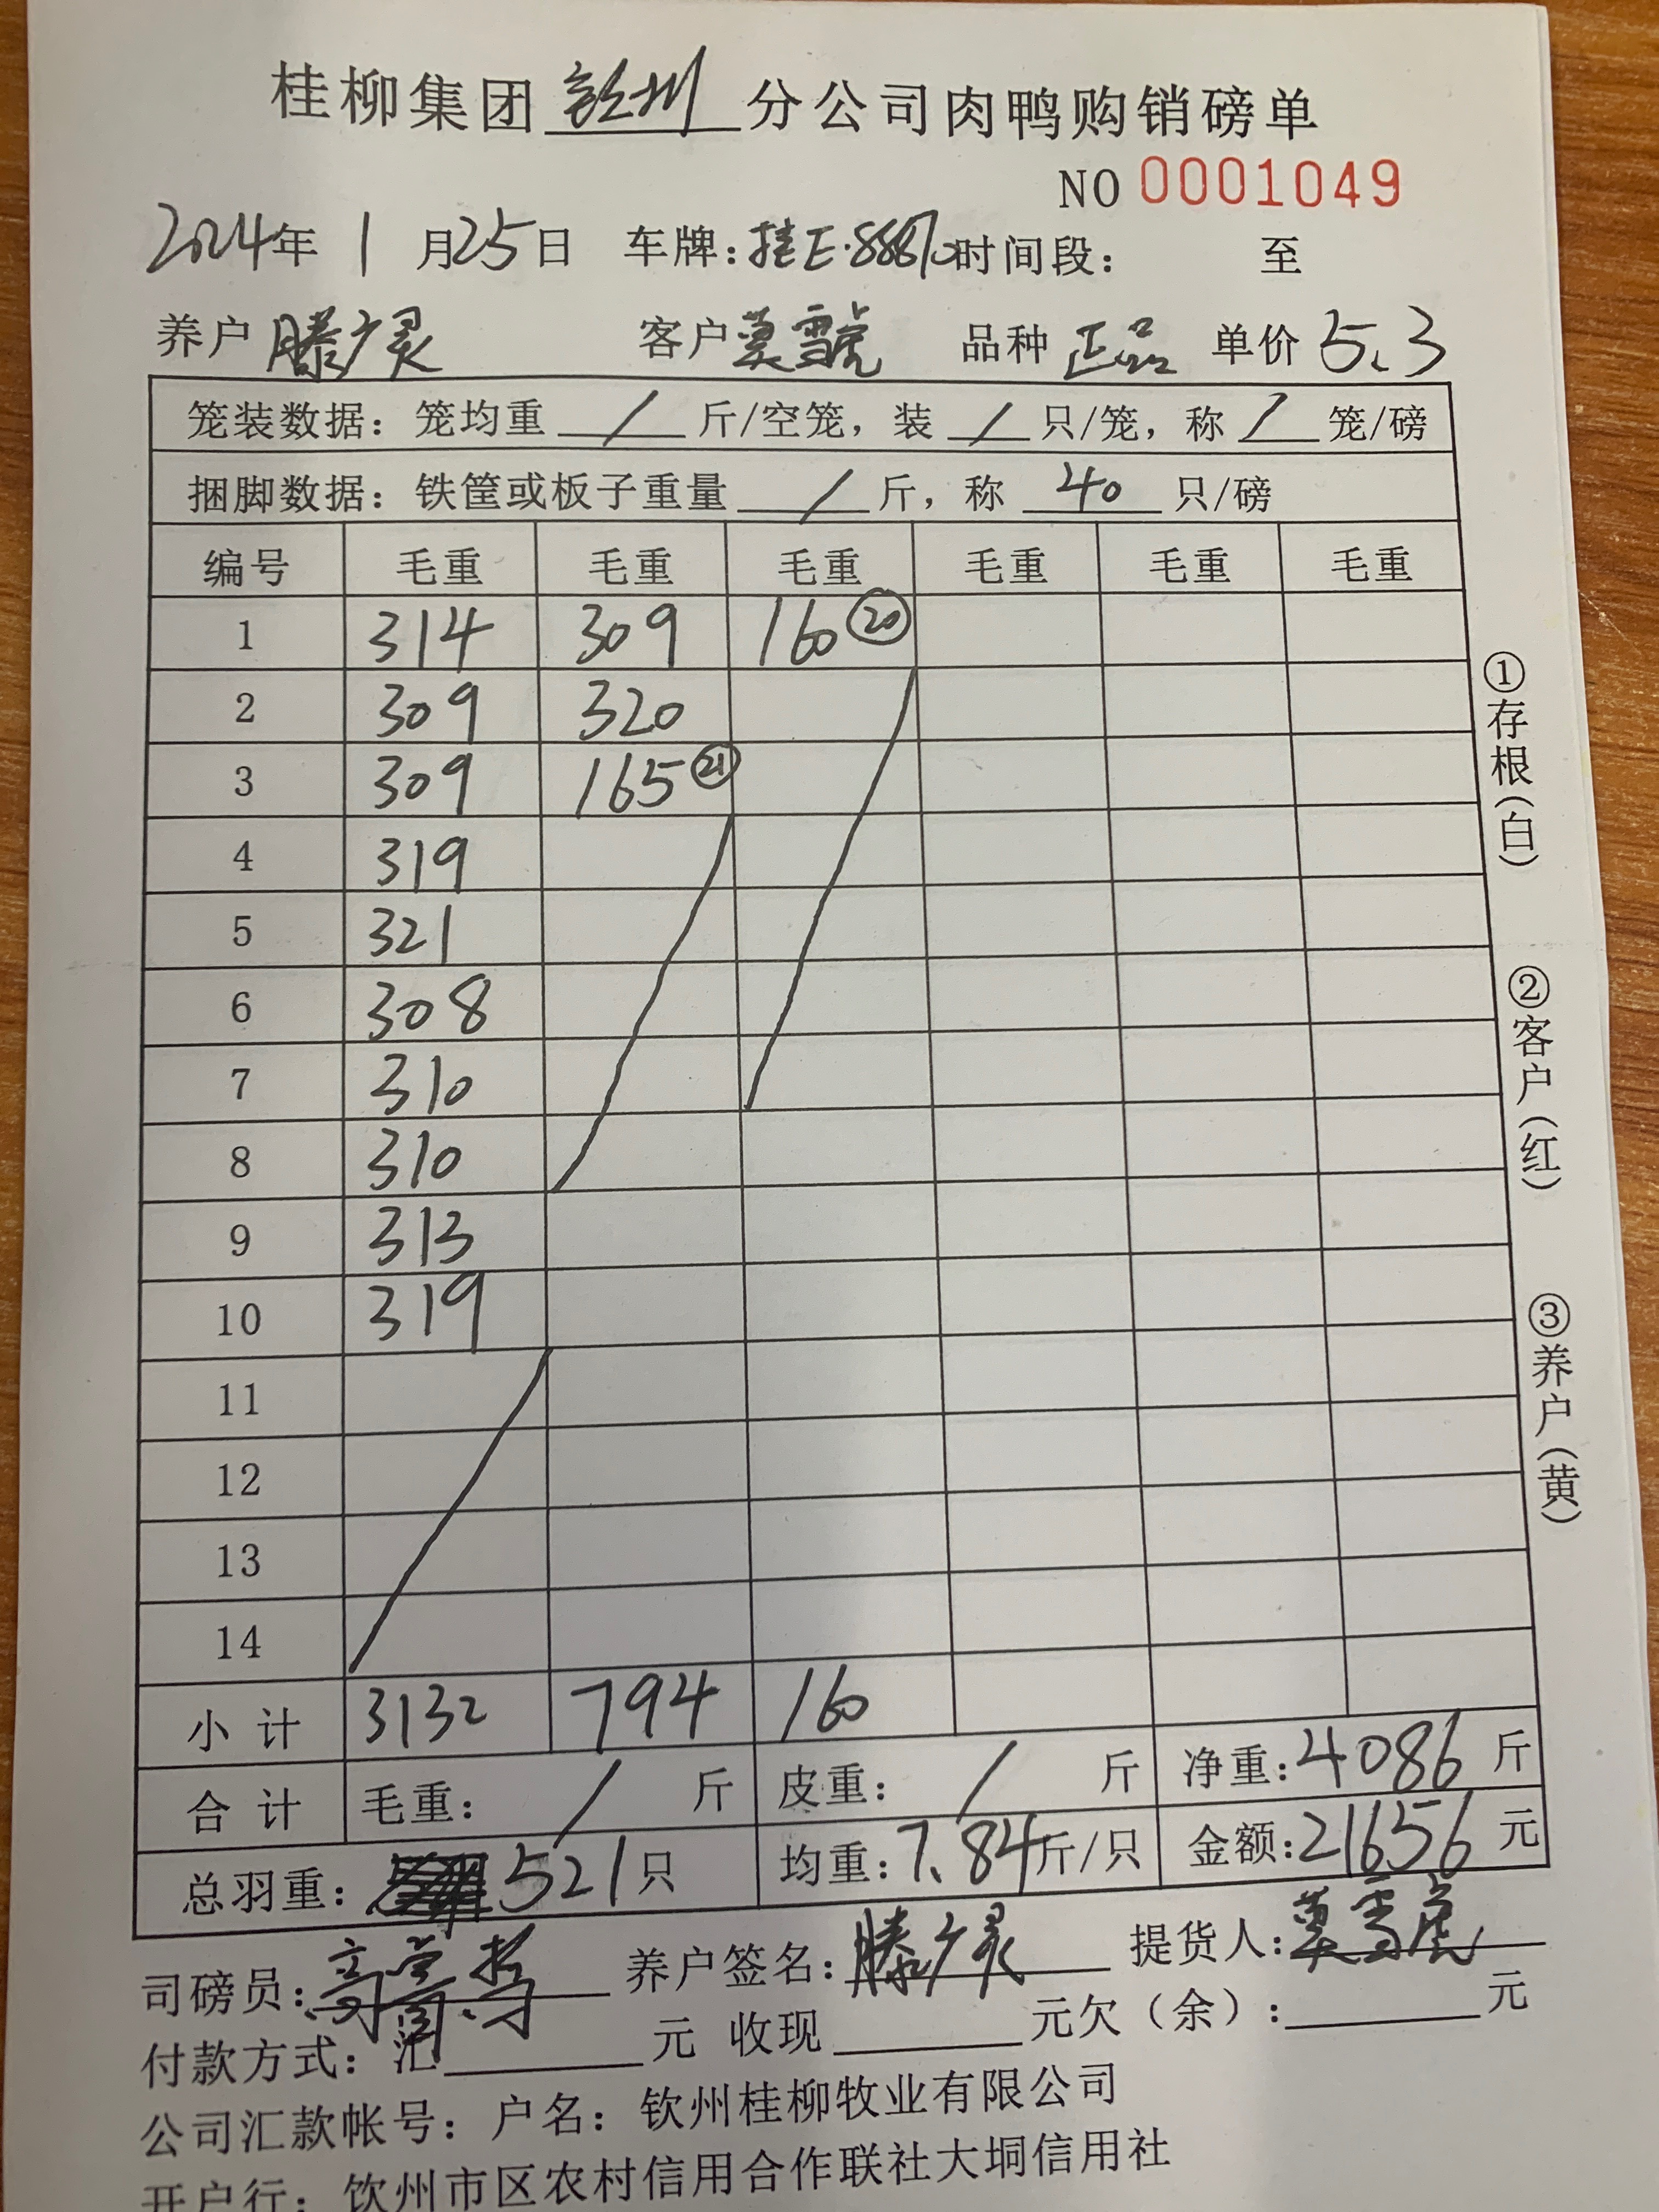 桂柳集团 钦州 分公司肉鸭购销磅单
NO 0001049
2024年 1 月25日 车牌:桂E· 时间段: 至
养户 滕广灵 客户 莫雪虎 品种 正品 单价 5.3
笼装数据: 笼均重 / 斤/空笼, 装 / 只/笼, 称 / 笼/磅
捆脚数据: 铁筐或板子重量 / 斤, 称 40 只/磅
编号 毛重 毛重 毛重 毛重 毛重 毛重
1 314 309 160 ⑳
2 309 320
3 309 165 ㉑
4 319
5 321
6 308
7 310
8 310
9 313
10 319
11
12
13
14
小 计 3132 794 160
合 计 毛重: / 斤 皮重: / 斤 净重: 4086 斤
总羽重: 521只 均重: 7.84斤/只 金额: 21656 元
司磅员: 养户签名: 滕广灵 提货人: 莫雪虎
付款方式: 汇 元 收现 元欠(余): 元
公司汇款帐号: 户名: 钦州桂柳牧业有限公司
开户行: 钦州市区农村信用合作联社大垌信用社
①存根(白)
②客户(红)
③养户(黄)